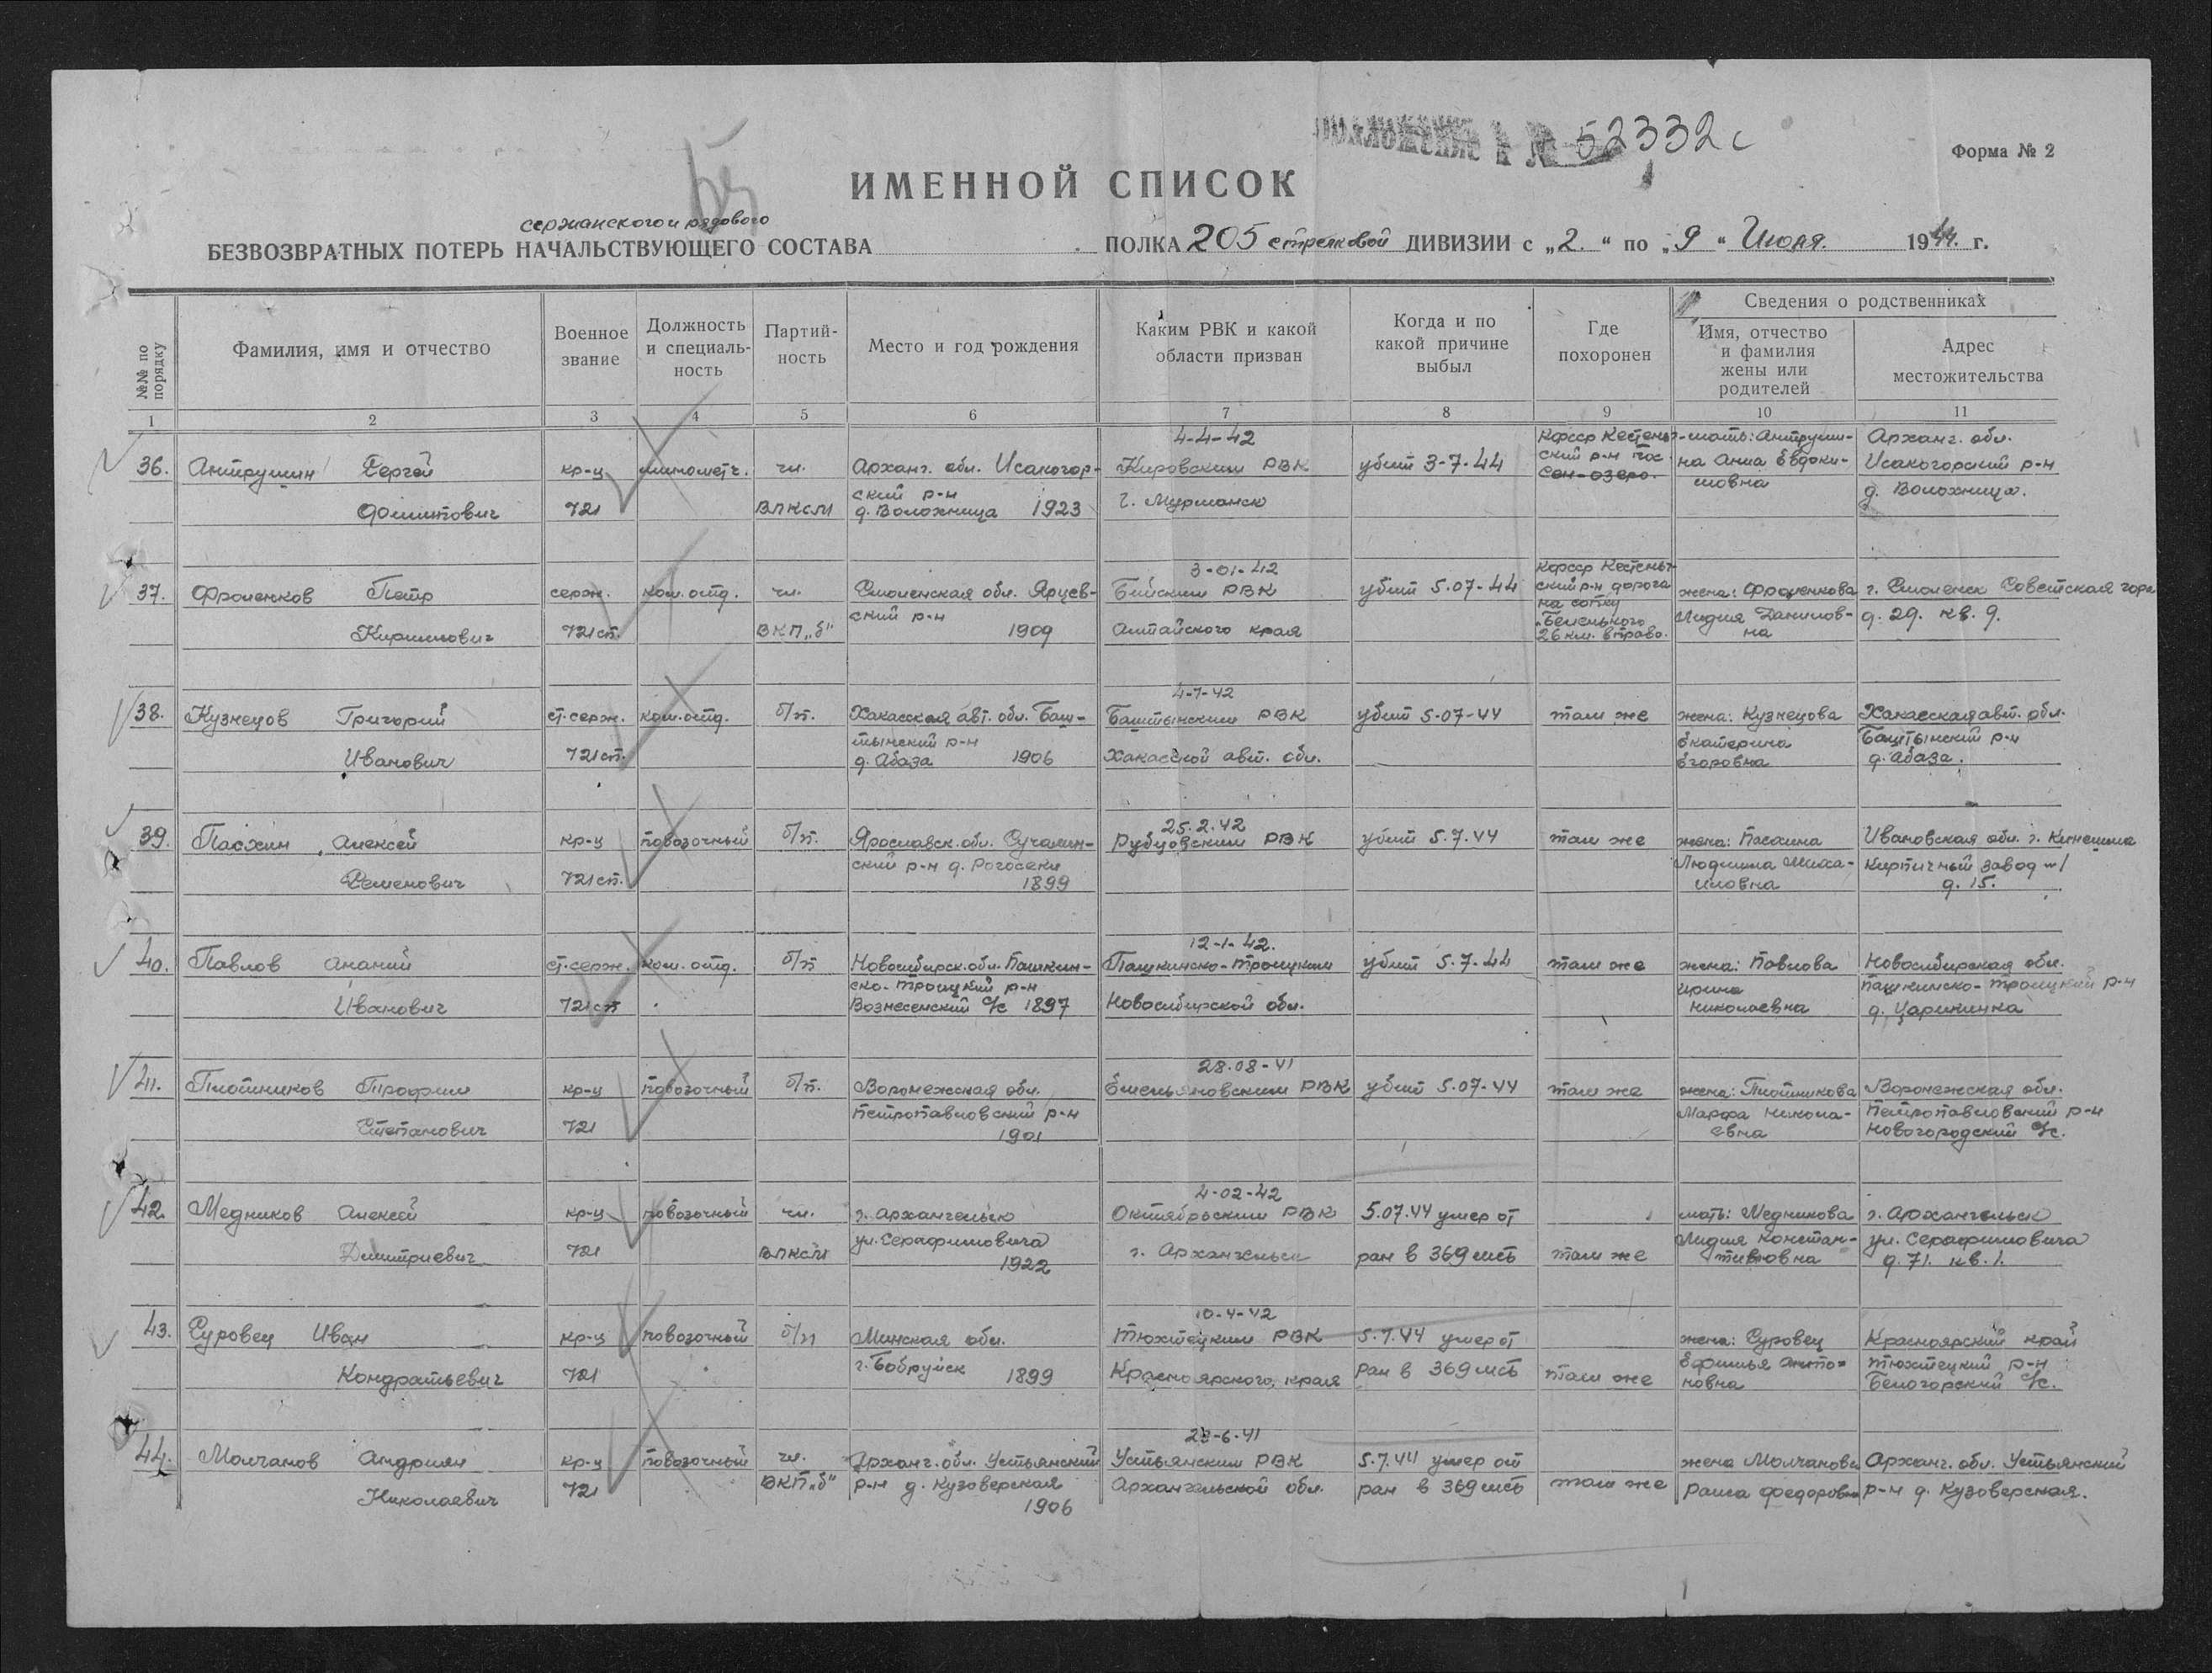 Приложение к № 52332с
Форма № 2
ИМЕННОЙ СПИСОК
сержанского и рядового
БЕЗВОЗВРАТНЫХ ПОТЕРЬ НАЧАЛЬСТВУЮЩЕГО СОСТАВА ПОЛКА 205 стрелковой ДИВИЗИИ с „2“ по „9“ Июля 1944 г.
№№ по порядку
Фамилия, имя и отчество
Военное звание
Должность и специальность
Партийность
Место и год рождения
Каким РВК и какой области призван
Когда и по какой причине выбыл
Где похоронен
Сведения о родственниках
Имя, отчество и фамилия жены или родителей
Адрес местожительства
1 2 3 4 5 6 7 8 9 10 11
4-4-42 Кфсср Кестеньг- мать: Антруши- Арханг. обл.
36. Антрушин Сергей кр-ц минометч. чл. Арханг. обл. Исакогор- Кировским РВК убит 3-7-44 ский р-н пос. на Анна Евдоки- Исакогорский р-н
ский р-н Сен-озеро. мовна
Филиппович 721 ВЛКСМ д. Волохница 1923 г. Мурманск д. Волохница.
3-01-42 Кфсср Кестеньг-
37. Фроленков Петр серж. ком. отд. чл. Смоленская обл. Ярцев- Бийским РВК убит 5.07-44 ский р-н дорога жена: Фроленкова г. Смоленск Советская гора
ский р-н на сопку
Кириллович 721 сп. ВКП„б“ 1909 Алтайского края „Беленького Лидия Данилов- д. 29. кв. 9.
26 км. вправо. на
4-1-42
38. Кузнецов Григорий ст. серж. ком. отд. б/п. Хакасская авт. обл. Баш- Баштынским РВК убит 5-07-44 там же жена: Кузнецова Хакасская авт. обл.
тынский р-н Екатерина Баштынский р-н
Иванович 721 сп. д. Абаза 1906 Хакасской авт. обл. Егоровна д. Абаза.
25.2.42
39. Пасхин Алексей кр-ц повозочный б/п. Ярославск. обл. Рубцовским РВК убит 5.7.44 там же жена: Ивановская обл. г. Кинешма
ский р-н д. Рогосеки Людмила Миха- Кирпичный завод № 1
Семенович 721 сп. 1899 иловна д. 15.
12-1-42.
40. Павлов Ананий ст. серж. ком. отд. б/п Новосибирск. обл. Пашкин- Пашкинско-Троицким убит 5.7-44 там же жена: Павлова Новосибирская обл.
ско-Троицкий р-н Ирина Пашкинско-Троицкий р-н
Иванович 721 сп Вознесенский с/с 1897 Новосибирской обл. Николаевна д. Царикинка
28.08-41
41. Плотников Трофим кр-ц повозочный б/п. Воронежская обл. Емельяновским РВК убит 5.07-44 там же жена: Плотникова Воронежская обл.
Петропавловский р-н Марфа Никола- Петропавловский р-н
Степанович 721 1901 евна Новогородский с/с.
4-02-42
42. Медников Алексей кр-ц повозочный чл. г. Архангельск Октябрьским РВК 5.07.44 умер от мать: Медникова г. Архангельск
ул. Серафимовича Лидия Констан- ул. Серафимовича
Дмитриевич 721 ВЛКСМ 1922 г. Архангельск ран в 369 мсб там же тиновна д. 71. кв. 1.
10-4-42
43. Суровец Иван кр-ц повозочный б/п Минская обл. Тюхтецким РВК 5.7.44 умер от жена: Суровец Красноярский край
г. Бобруйск Ефимья Анто- Тюхтецкий р-н
Кондратьевич 721 1899 Красноярского края ран в 369 мсб там же новна Белогорский с/с.
23-6-41
44. Молчанов Андриян кр-ц повозочный чл. Арханг. обл. Устьянский Устьянским РВК 5.7.44 умер от жена Молчанова Арханг. обл. Устьянский
Николаевич 721 ВКП„б“ р-н д. Кузоверская Архангельской обл. ран в 369 мсб там же Раиса Федоровна р-н д. Кузоверская.
1906